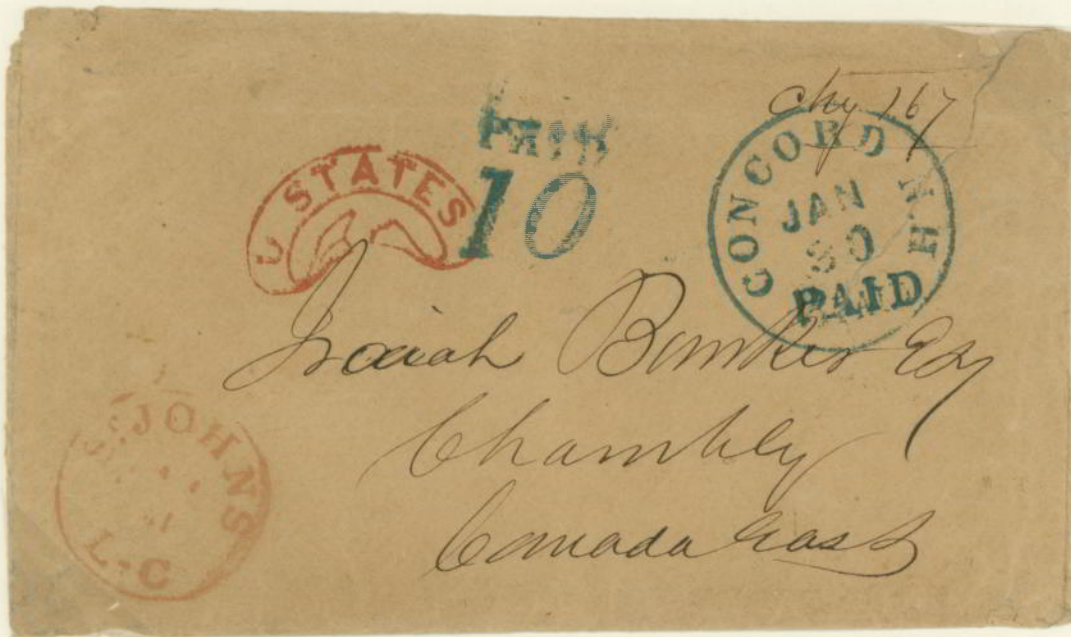 Chg 167
U STATES
PAID
10
CONCORD N H
JAN
30
PAID
Isaiah Bunker Esq
Chambly
Canada East
ST. JOHNS
L.C